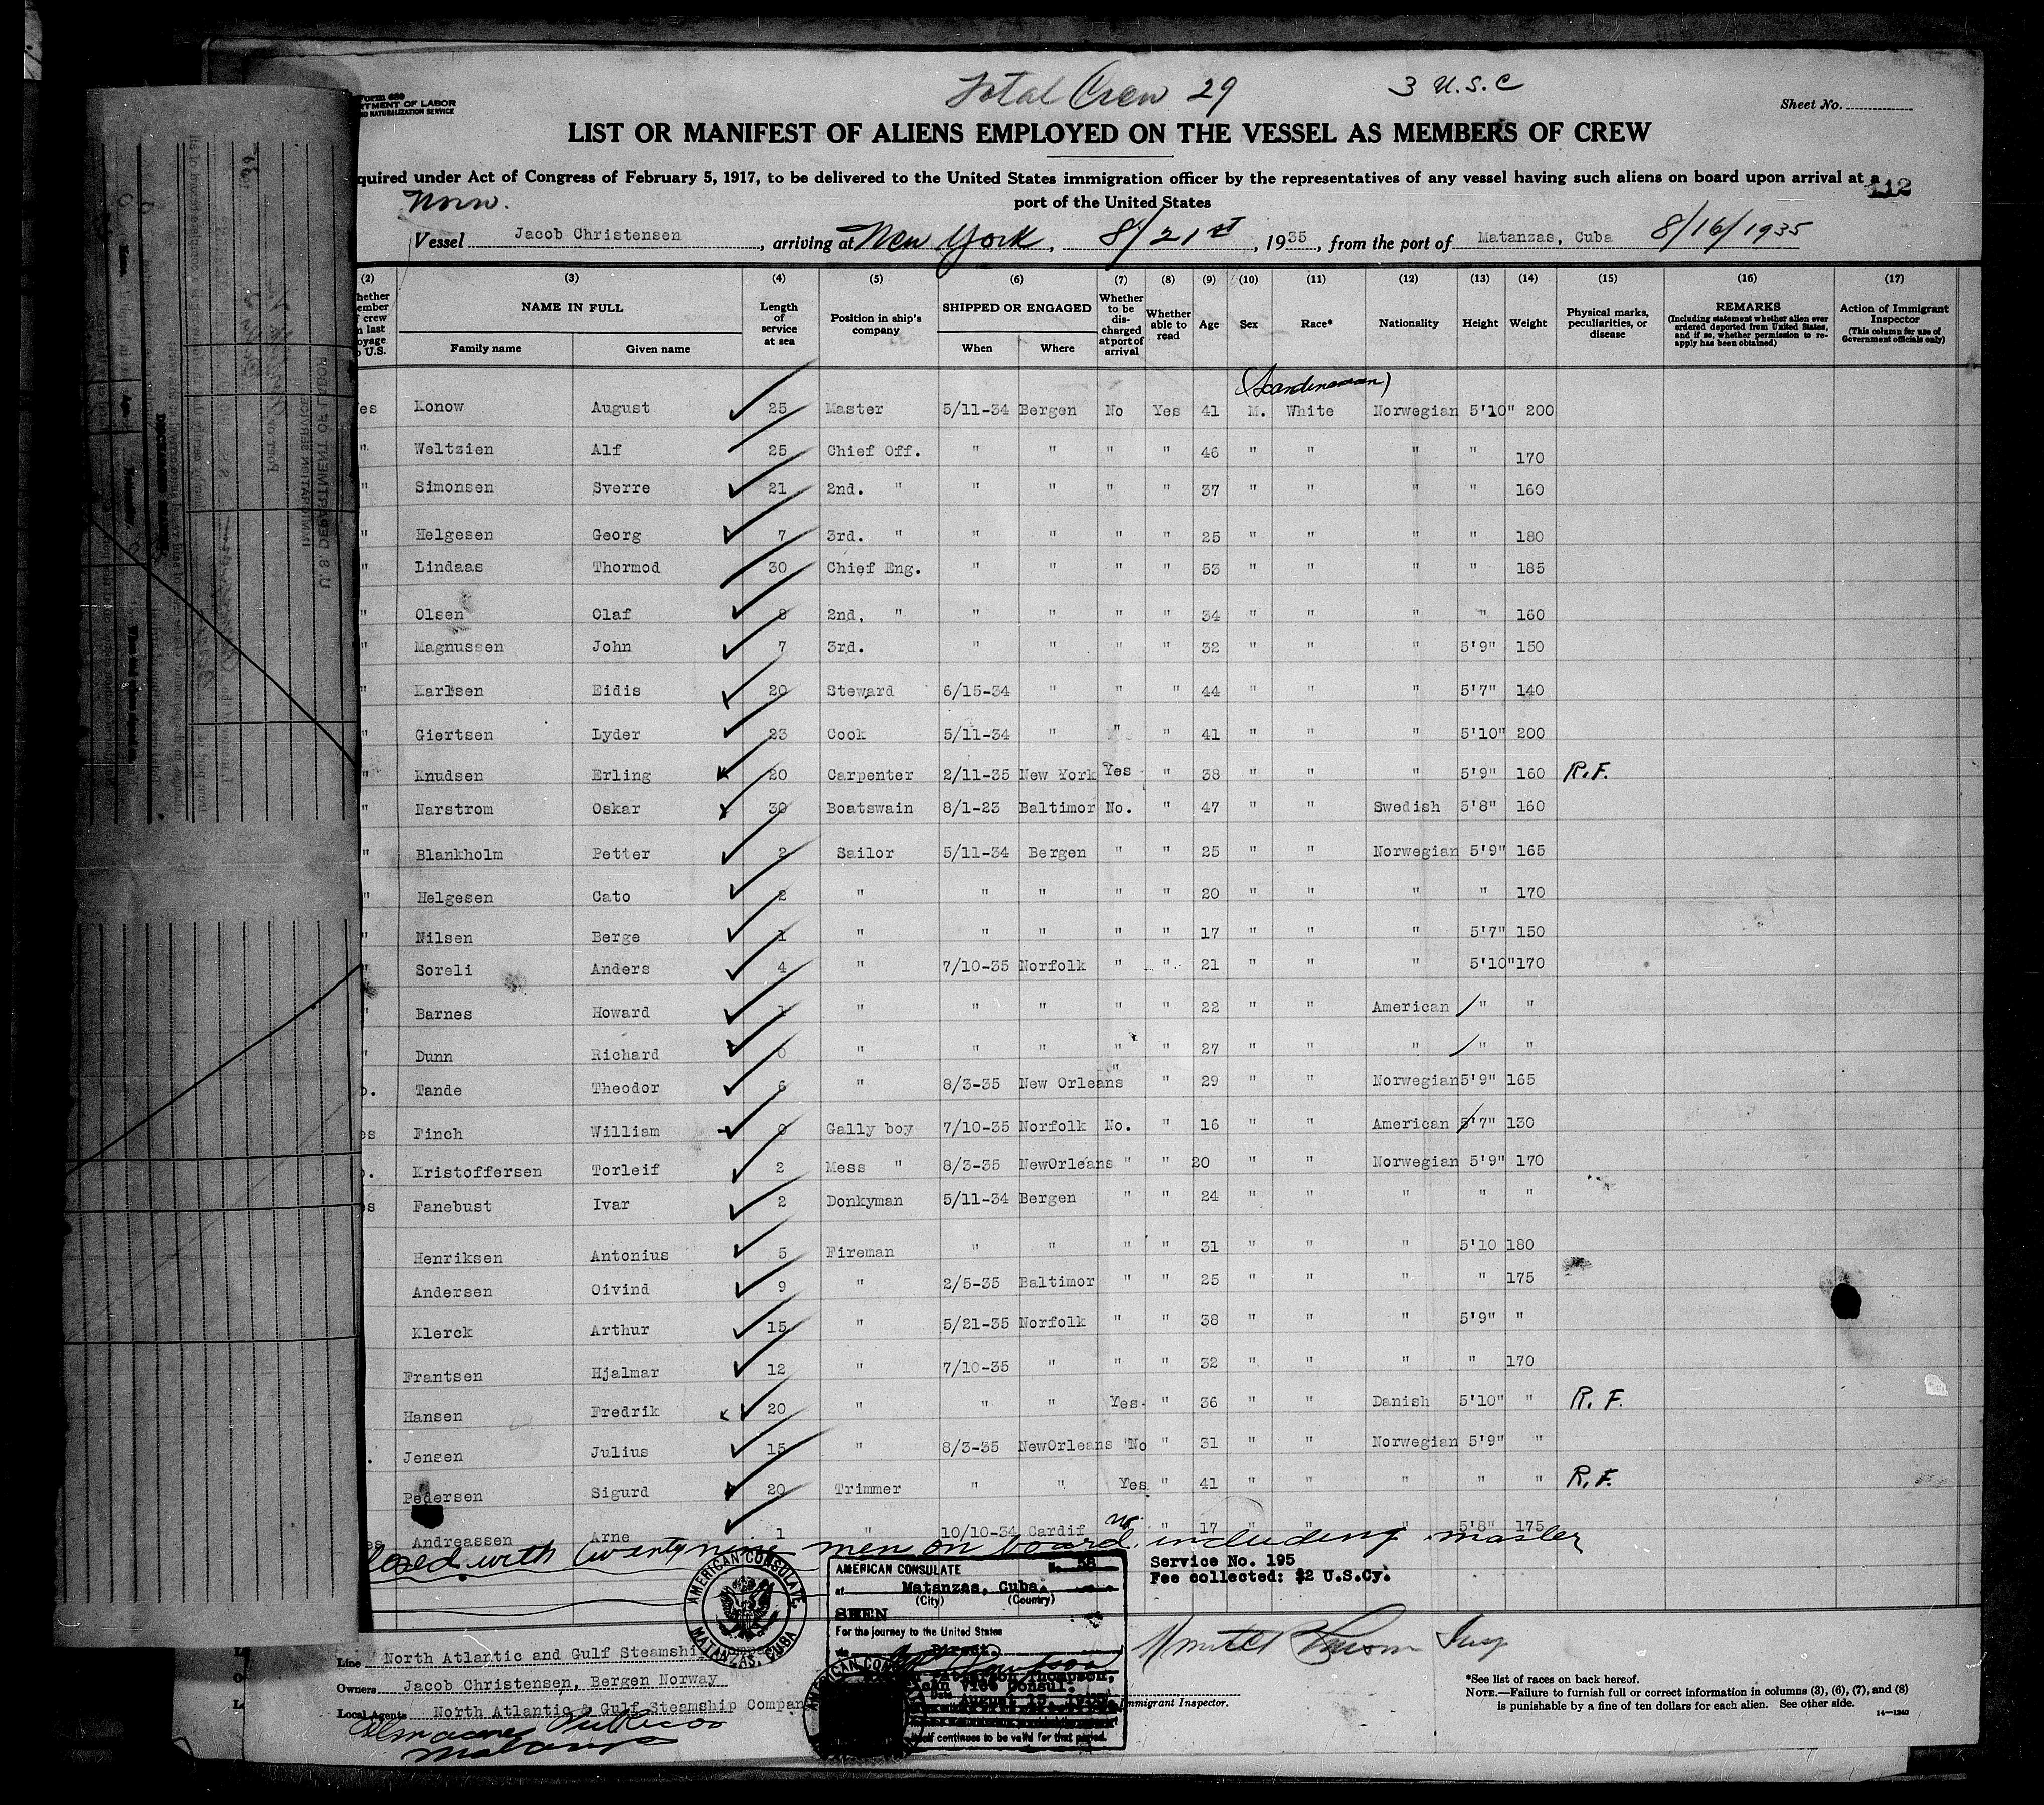 Total Crew 29
3 U.S.C
Form 680
RTMENT OF LABOR
ND NATURALIZATION SERVICE
Sheet No.
LIST OR MANIFEST OF ALIENS EMPLOYED ON THE VESSEL AS MEMBERS OF CREW
quired under Act of Congress of February 5, 1917, to be delivered to the United States immigration officer by the representatives of any vessel having such aliens on board upon arrival at a
port of the United States
112
Norw.
Vessel Jacob Christensen, arriving at New York, 8/21st, 1935, from the port of Matanzas, Cuba 8/16/1935
(2) (3) (4) (5) (6) (7) (8) (9) (10) (11) (12) (13) (14) (15) (16) (17)
hether ember f crew n last oyage o U.S.
NAME IN FULL
Family name Given name
Length of service at sea
Position in ship's company
SHIPPED OR ENGAGED
When Where
Whether to be discharged at port of arrival
Whether able to read
Age Sex Race* Nationality Height Weight
Physical marks, peculiarities, or disease
REMARKS
(Including statement whether alien ever ordered deported from United States, and if so, whether permission to reapply has been obtained)
Action of Immigrant Inspector
(This column for use of Government officials only)
(Scandinavian)
es Konow August 25 Master 5/11-34 Bergen No Yes 41 M. White Norwegian 5'10" 200
" Weltzien Alf 25 Chief Off. " " " " 46 " " " " 170
" Simonsen Sverre 21 2nd. " " " " " 37 " " " " 160
" Helgesen Georg 7 3rd. " " " " " 25 " " " " 180
" Lindaas Thormod 30 Chief Eng. " " " " 53 " " " " 185
" Olsen Olaf 8 2nd, " " " " " 34 " " " " 160
" Magnussen John 7 3rd. " " " " 32 " " " 5'9" 150
" Karlsen Eidis 20 Steward 6/15-34 " " " 44 " " " 5'7" 140
" Giertsen Lyder 23 Cook 5/11-34 " " " 41 " " " 5'10" 200
" Knudsen Erling 20 Carpenter 2/11-35 New York Yes " 38 " " " 5'9" 160 R.F.
" Narstrom Oskar 30 Boatswain 8/1-23 Baltimor No. " 47 " " Swedish 5'8" 160
" Blankholm Petter 2 Sailor 5/11-34 Bergen " " 25 " " Norwegian 5'9" 165
" Helgesen Cato 2 " " " " " 20 " " " " 170
" Nilsen Berge 1 " " " " " 17 " " " 5'7" 150
" Soreli Anders 4 " 7/10-35 Norfolk " " 21 " " " 5'10" 170
" Barnes Howard 1 " " " " " 22 " " American " "
" Dunn Richard 0 " " " " " 27 " " " " "
o. Tande Theodor 6 " 8/3-35 New Orleans " " 29 " " Norwegian 5'9" 165
es Finch William 0 Gally boy 7/10-35 Norfolk No. " 16 " " American 5'7" 130
o. Kristoffersen Torleif 2 Mess " 8/3-35 NewOrleans " " 20 " " Norwegian 5'9" 170
es Fanebust Ivar 2 Donkyman 5/11-34 Bergen " " 24 " " " " "
Henriksen Antonius 5 Fireman " " " " 31 " " " 5'10 180
Andersen Oivind 9 " 2/5-35 Baltimor " " 25 " " " " 175
Klerck Arthur 15 " 5/21-35 Norfolk " " 38 " " " 5'9" "
Frantsen Hjalmar 12 " 7/10-35 " " " 32 " " " " 170
Hansen Fredrik 20 " " " Yes. " 36 " " Danish 5'10" " R.F.
. Jensen Julius 15 " 8/3-35 NewOrleans No " 31 " " Norwegian 5'9" "
Pedersen Sigurd 20 Trimmer " " Yes " 41 " " " " " R.F.
es Andreassen Arne 1 " 10/10-34 Cardif no " 17 " " " 5'8" 175
losed with twentynine men on board, including master
AMERICAN CONSULATE
MATANZAS, CUBA
AMERICAN CONSULATE No. 58
at Matanzas, Cuba.
(City) (Country)
SEEN
For the journey to the United States
via Direct.
Patterson Thompson,
Vice Consul.
Service No. 195
Fee collected: $2 U.S.Cy.
itself continues to be valid for that period.
Line North Atlantic and Gulf Steamship
Owners Jacob Christensen, Bergen Norway
Local Agents North Atlantic & Gulf Steamship Compan
Matanzas
Immigrant Inspector.
*See list of races on back hereof.
NOTE.—Failure to furnish full or correct information in columns (3), (6), (7), and (8)
is punishable by a fine of ten dollars for each alien. See other side.
14—1240
U. S. DEPARTMENT OF LABOR
IMMIGRATION SERVICE